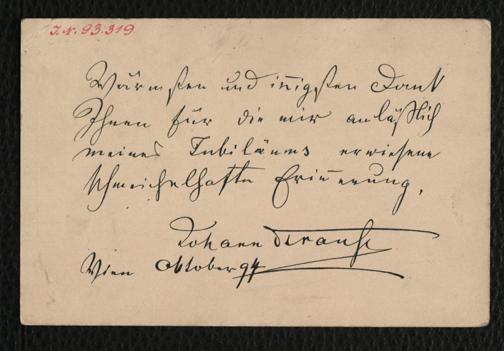 I.N. 93.319
Wärmsten und iñigsten Dank
Ihnen für die mir anläßlich
meines Jubiläums erwiesene
schmeichelhafte Eriñerung,
Johann Strauß
Wien Oktober 94